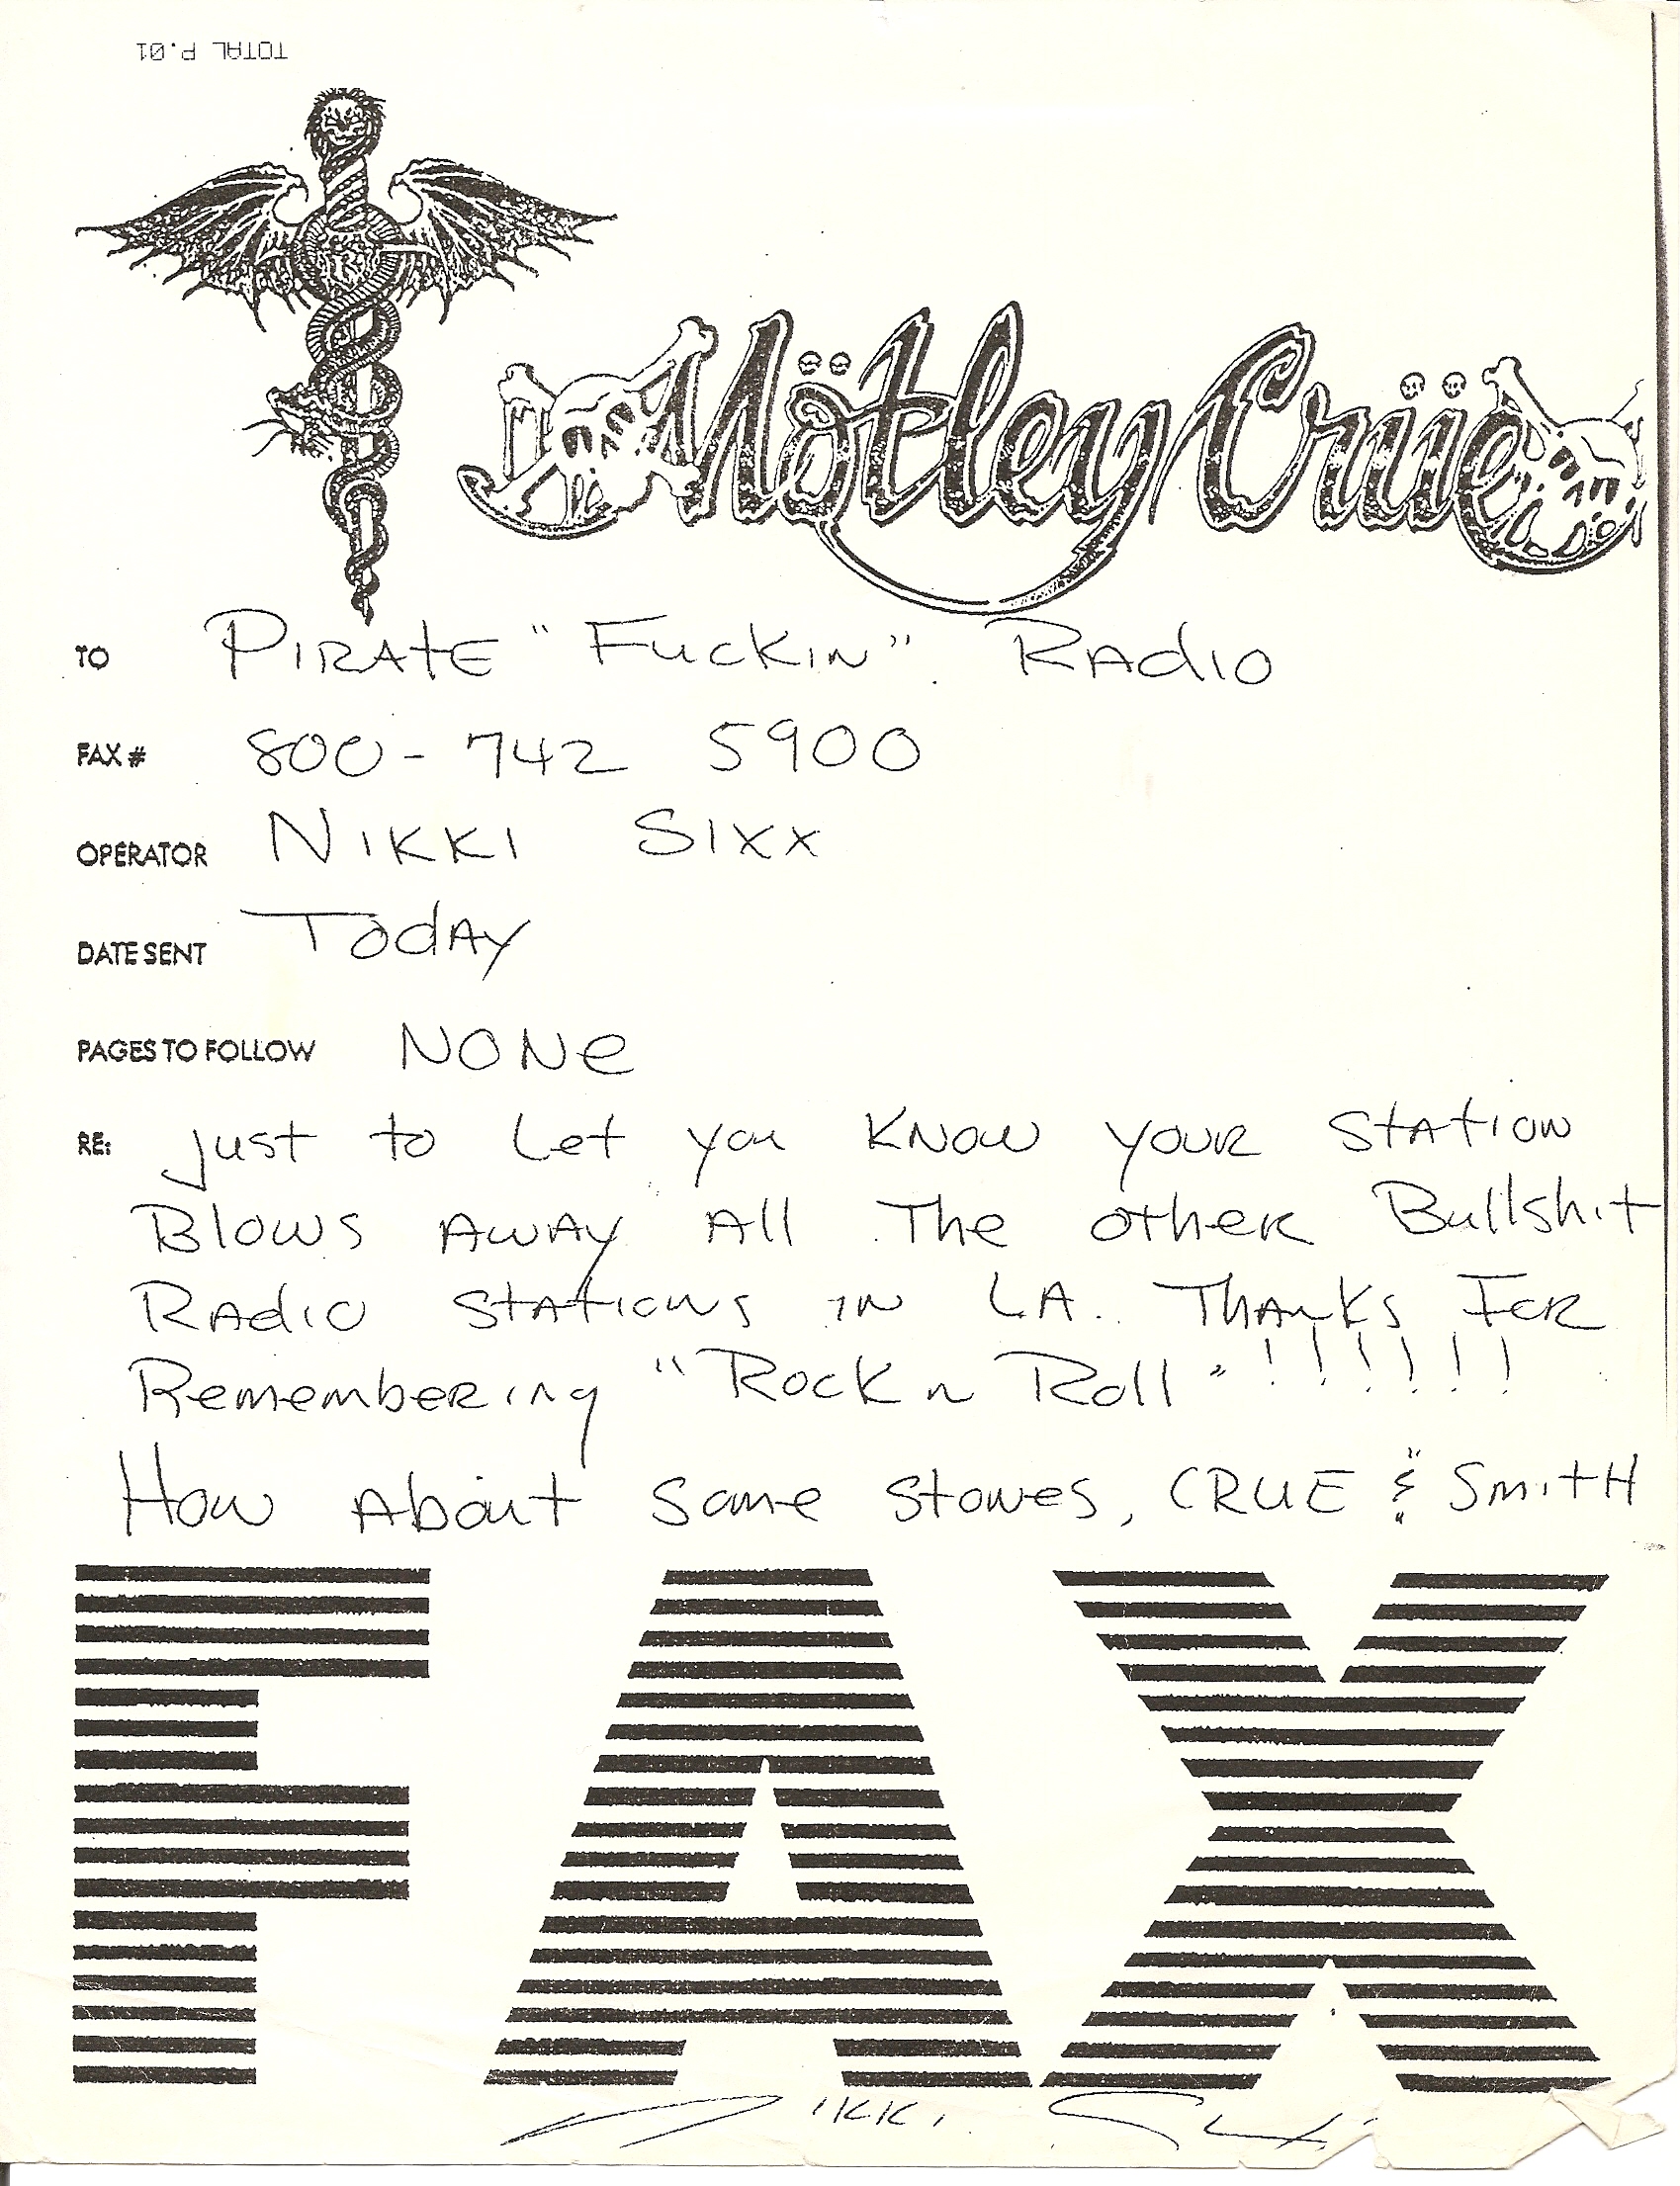 TOTAL P.01
Mötley Crüe
TO PIRATE "FUCKIN" RADIO
FAX # 800-742 5900
OPERATOR NIKKI SIXX
DATE SENT TODAY
PAGES TO FOLLOW NONE
RE: Just to Let you KNOW YOUR STATION
BLOWS AWAY All The other Bullshit
RADIO STATIONS IN LA. THANKS FOR
REMEMBERING "ROCK n Roll"!!!!!!
How About Some Stones, CRUE & SMITH
FAX
Nikki Sixx